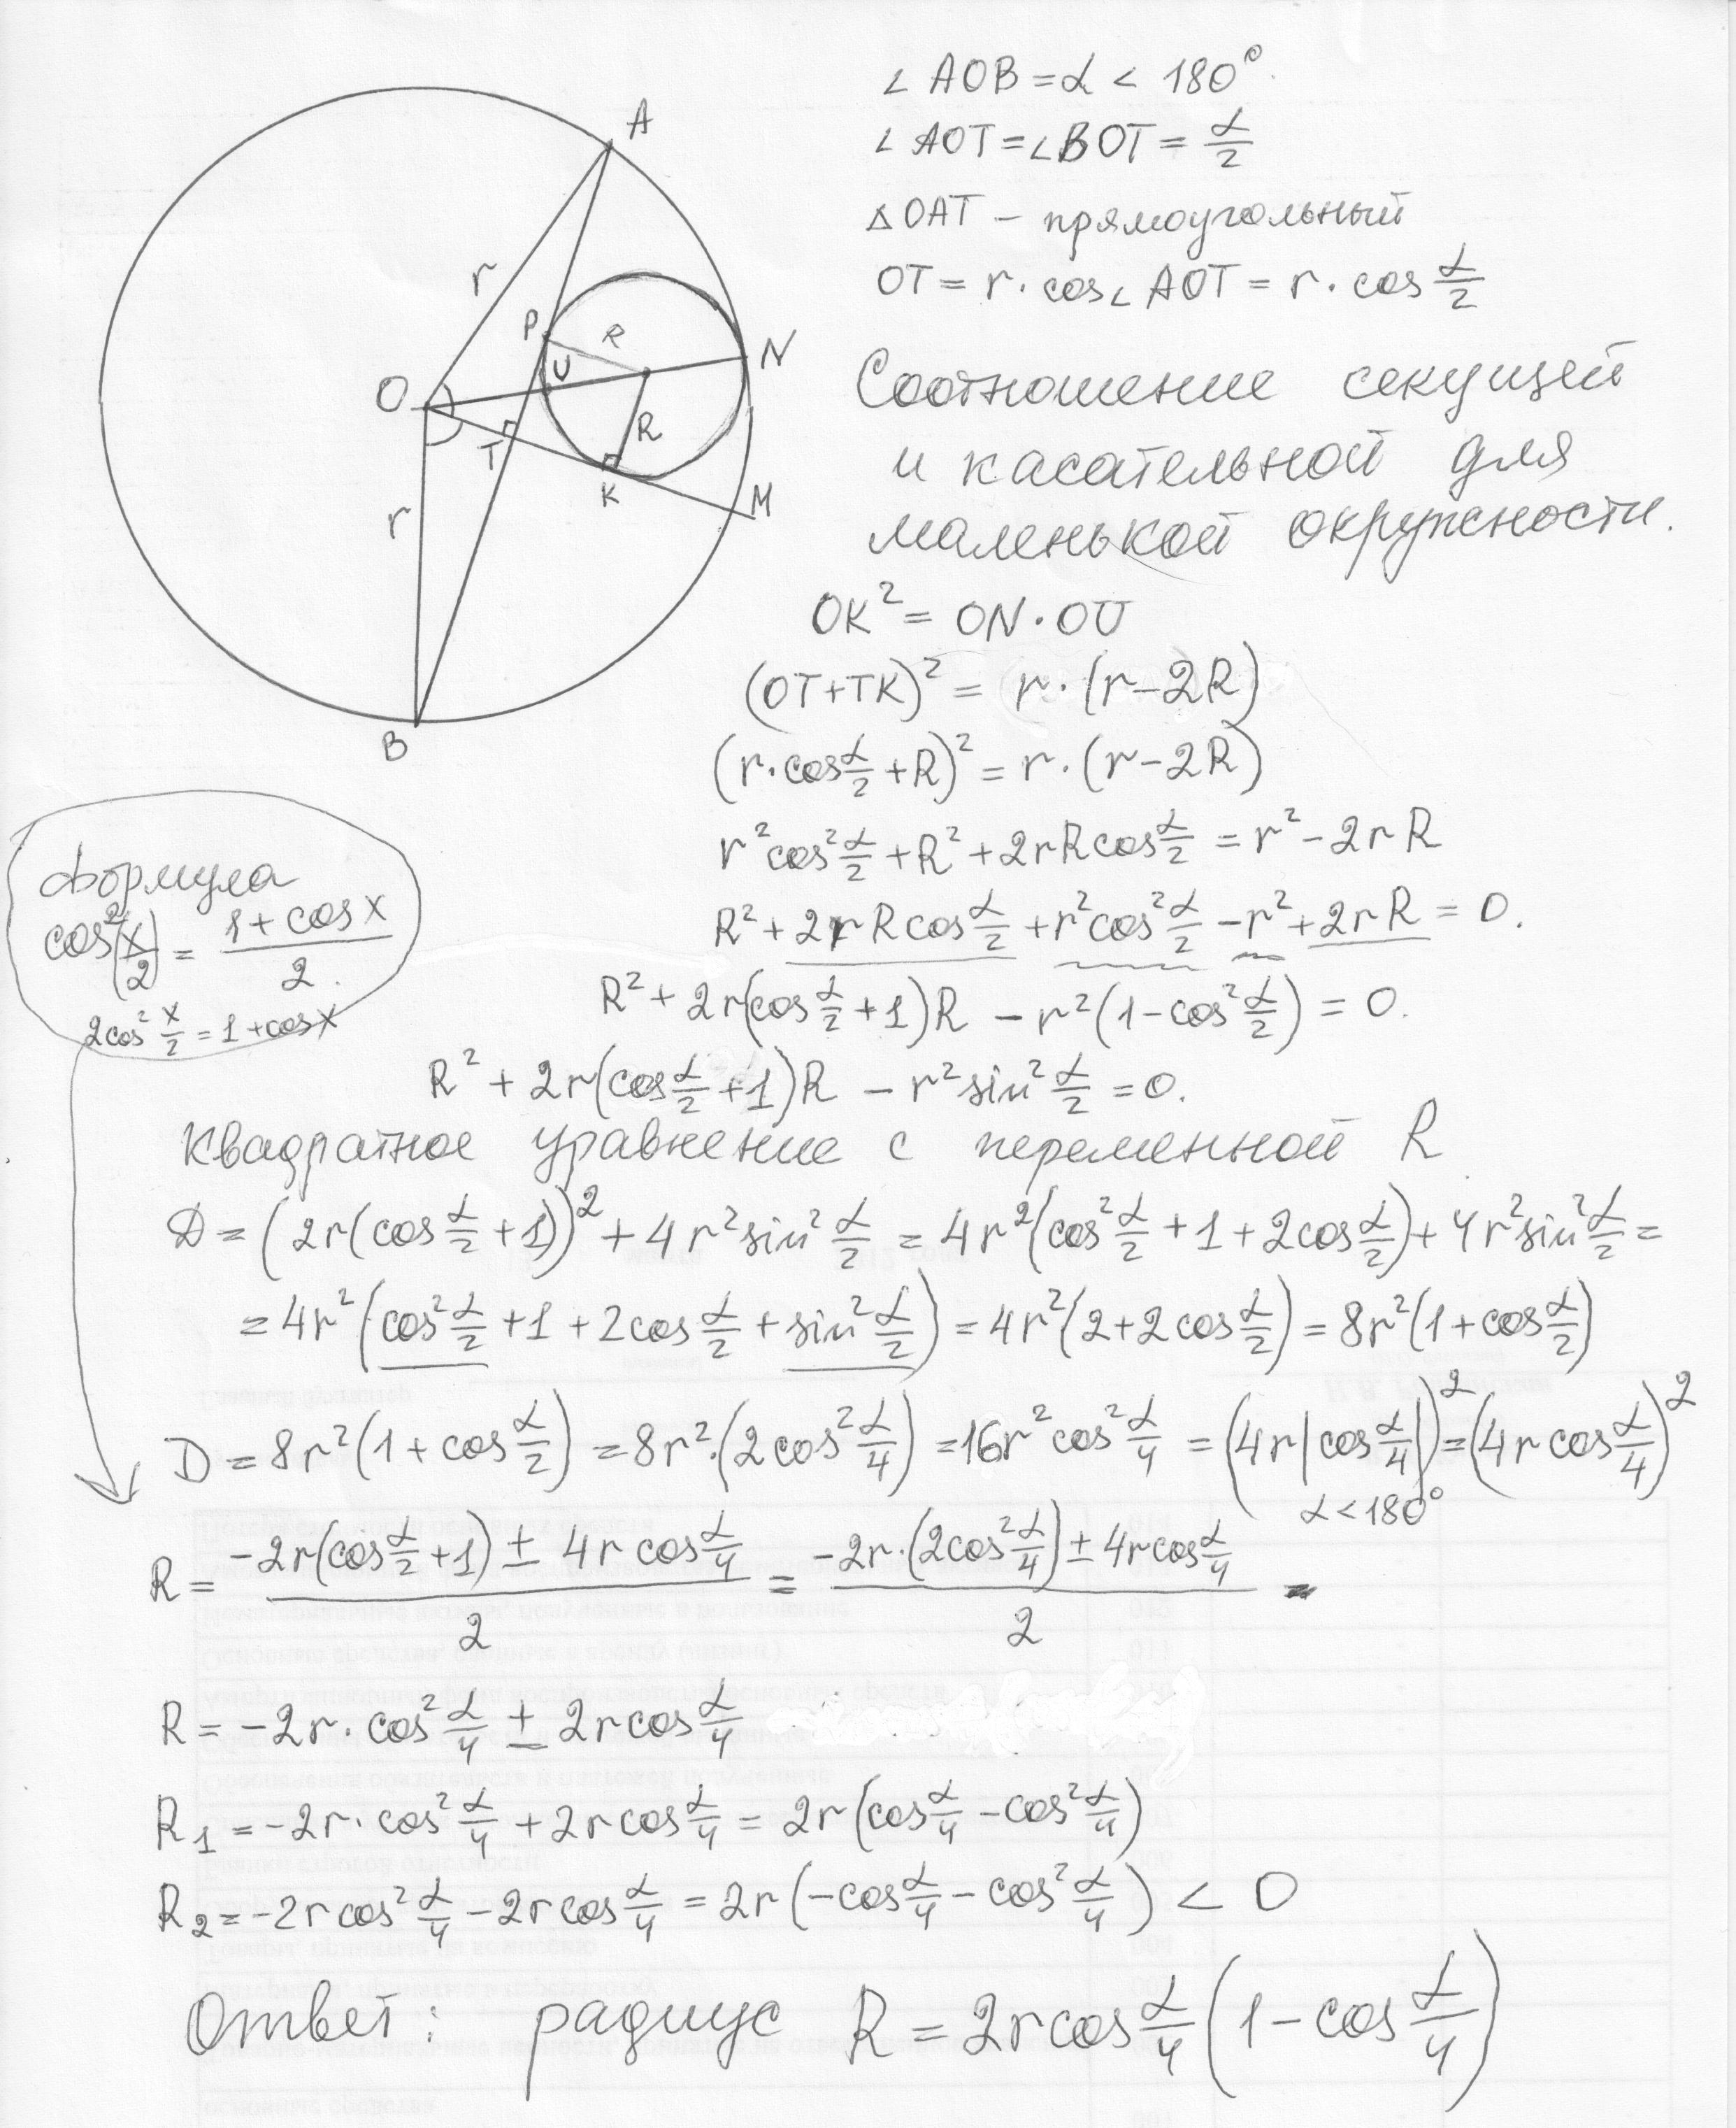 ∠AOB = α < 180°.
∠AOT = ∠BOT = α/2
△OAT – прямоугольный
OT = r · cos∠AOT = r · cos α/2
A
r
P
R
N
U
O
R
T
K
M
r
B
Соотношение секущей
и касательной для
маленькой окружности.
OK² = ON · OU
(OT+TK)² = r · (r – 2R)
(r · cos α/2 + R)² = r · (r – 2R)
r² cos² α/2 + R² + 2rR cos α/2 = r² – 2rR
R² + 2rR cos α/2 + r² cos² α/2 – r² + 2rR = 0.
R² + 2r(cos α/2 + 1)R – r²(1 – cos² α/2) = 0.
R² + 2r(cos α/2 + 1)R – r² sin² α/2 = 0.
формула
cos²(x/2) = (1 + cos x)/2.
2cos² x/2 = 1 + cos x
Квадратное уравнение с переменной R
D = (2r(cos α/2 + 1))² + 4r² sin² α/2 = 4r²(cos² α/2 + 1 + 2cos α/2) + 4r² sin² α/2 =
= 4r²(cos² α/2 + 1 + 2cos α/2 + sin² α/2) = 4r²(2 + 2cos α/2) = 8r²(1 + cos α/2)
D = 8r²(1 + cos α/2) = 8r² · (2cos² α/4) = 16r² cos² α/4 = (4r|cos α/4|)² = (4r cos α/4)²
α < 180°
R = (–2r(cos α/2 + 1) ± 4r cos α/4)/2 = (–2r · (2cos² α/4) ± 4r cos α/4)/2 =
R = –2r · cos² α/4 ± 2r cos α/4
R₁ = –2r · cos² α/4 + 2r cos α/4 = 2r(cos α/4 – cos² α/4)
R₂ = –2r cos² α/4 – 2r cos α/4 = 2r(–cos α/4 – cos² α/4) < 0
Ответ: радиус R = 2r cos α/4 (1 – cos α/4)